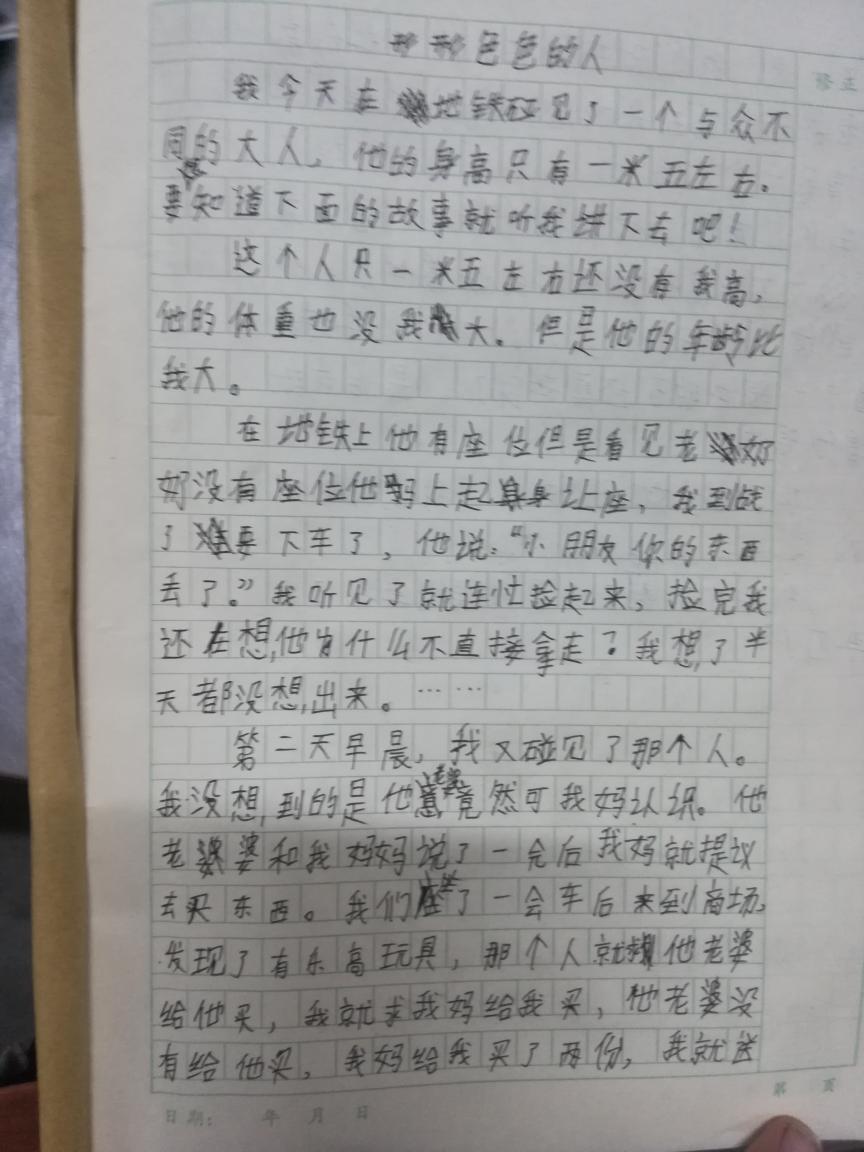 形形色色的人
我今天在地铁碰见了一个与众不
同的大人,他的身高只有一米五左右。
要知道下面的故事就听我讲下去吧!
这个人只一米五左右还没有我高,
他的体重也没我大。但是他的年龄比
我大。
在地铁上他有座位但是看见老奶
奶没有座位他马上起身让座,我到站
了要下车了,他说:“小朋友你的东西
丢了。”我听见了就连忙捡起来,捡完我
还在想,他为什么不直接拿走?我想了半
天都没想出来。……
第二天早晨,我又碰见了那个人。
我没想到的是他老婆竟然可我妈认识。他
老婆和我妈妈说了一会后我妈就提议
去买东西。我们坐了一会车后来到商场,
发现了有乐高玩具,那个人就求他老婆
给他买,我就求我妈给我买,他老婆没
有给他买,我妈给我买了两份,我就送
修正
日期: 年 月 日
第 页